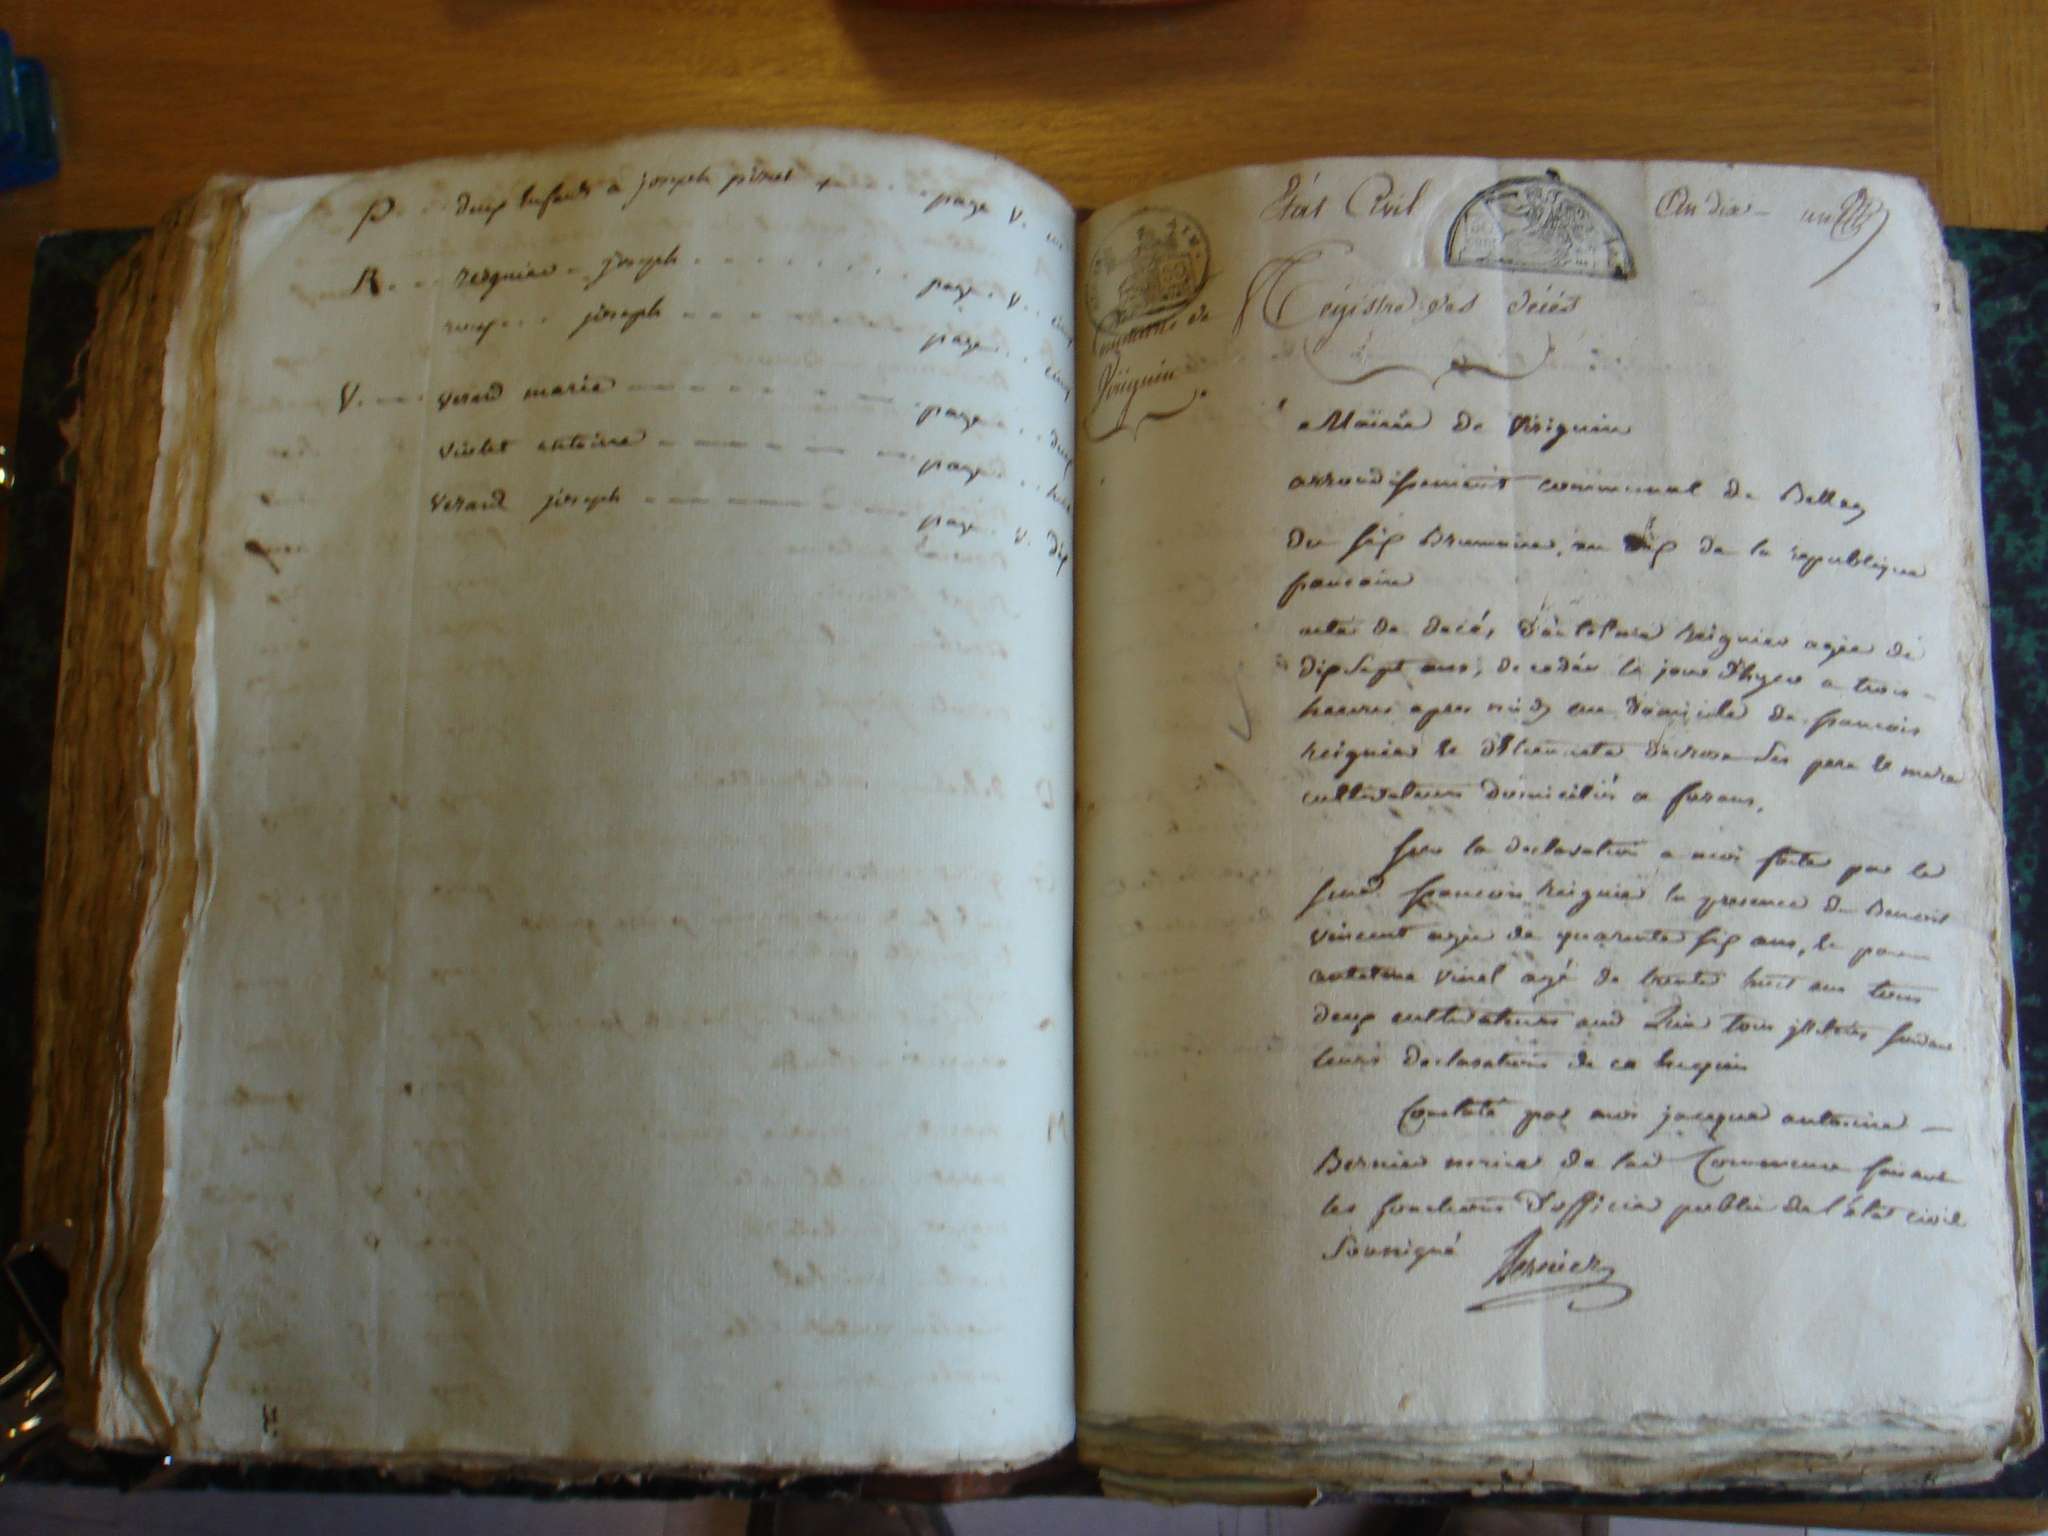 P. - - deux enfants a joseph pinet - - page V.
R. - - reignier - joseph - - - - - page V. cinq
roux - - joseph - - - - page - - cinq
V. - - - verand marie - - - - - - page - - deux
violet antoine - - - - - - page - - huit
verand joseph - - - - - - page V. dix
État Civil An dix - un
Commune de
Virignin
Régistre des décès
Mairie de Virignin
arrondissement communal de Belley
Du six Brumaire, an dix de la republique
francaise
acte de decés, d'antelme Reignier agée de
dix sept ans, decedée le jour d'hyer a trois
heures apres midy au domicile de francois
Reignier et ses pere et mere
cultivateurs domiciliés a furans,
sur la declaration a moi faite par le
susd. francois Reignier la presence de Benoit
vincent agée de quarante six ans, et par
antelme vinel agé de trente huit ans tous
deux cultivateurs aud
leurs declarations de ce requis
Constaté par moi jacque antoine
Bernier maire de lad Commune faisant
les fonctions d'officier public de l'état civil
soussigné Bernier